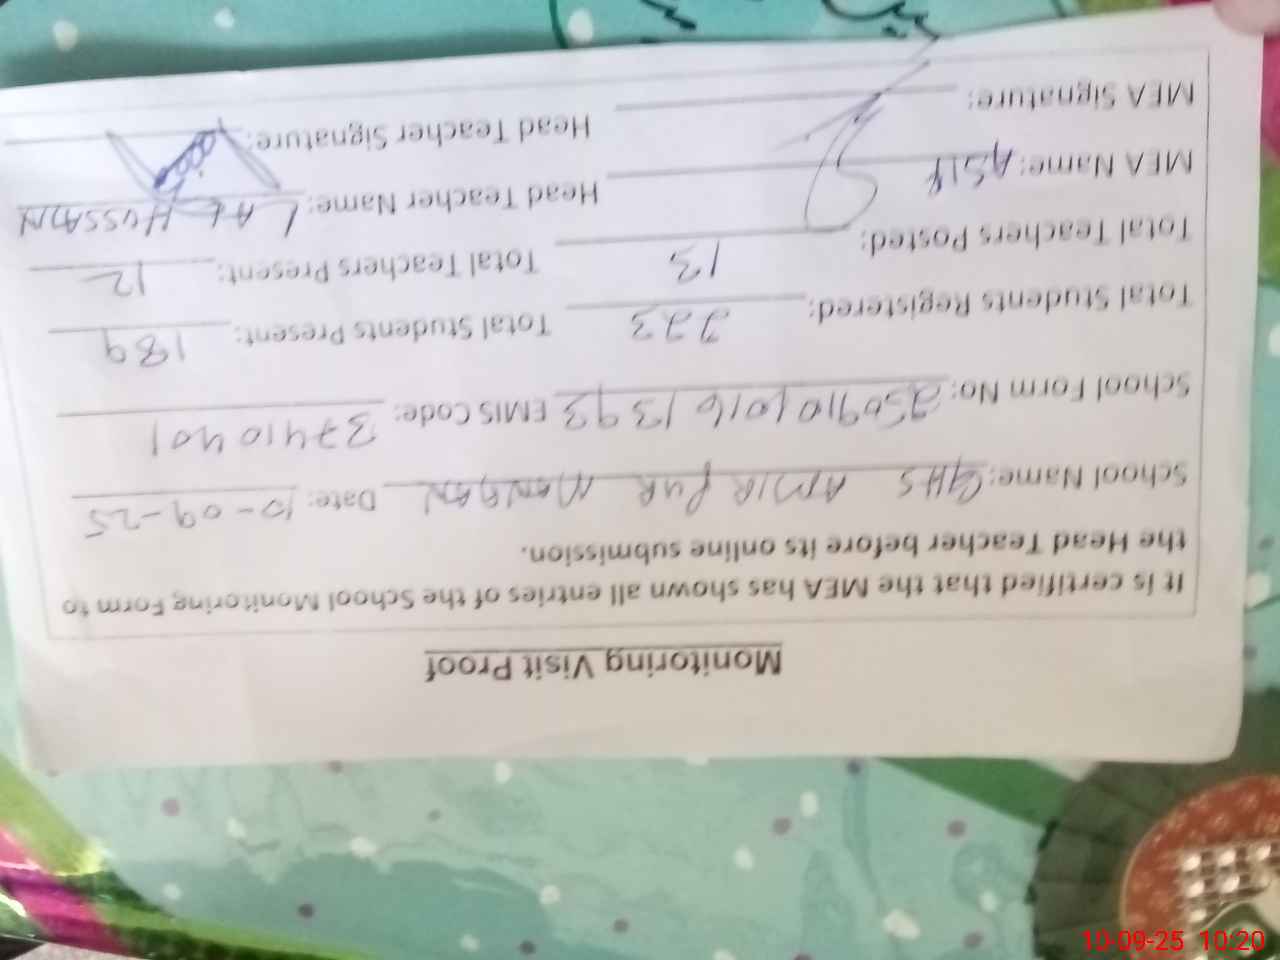 Monitoring Visit Proof
It is certified that the MEA has shown all entries of the School Monitoring Form to
the Head Teacher before its online submission.
School Name: GHS AMIR PUR MANGAN Date: 10-09-25
School Form No: EMIS Code: 37410401
Total Students Registered: 223 Total Students Present: 189
Total Teachers Posted: 13 Total Teachers Present: 12
MEA Name: ASIF Head Teacher Name: LAL HUSSAIN
MEA Signature: Head Teacher Signature:
10-09-25 10:20